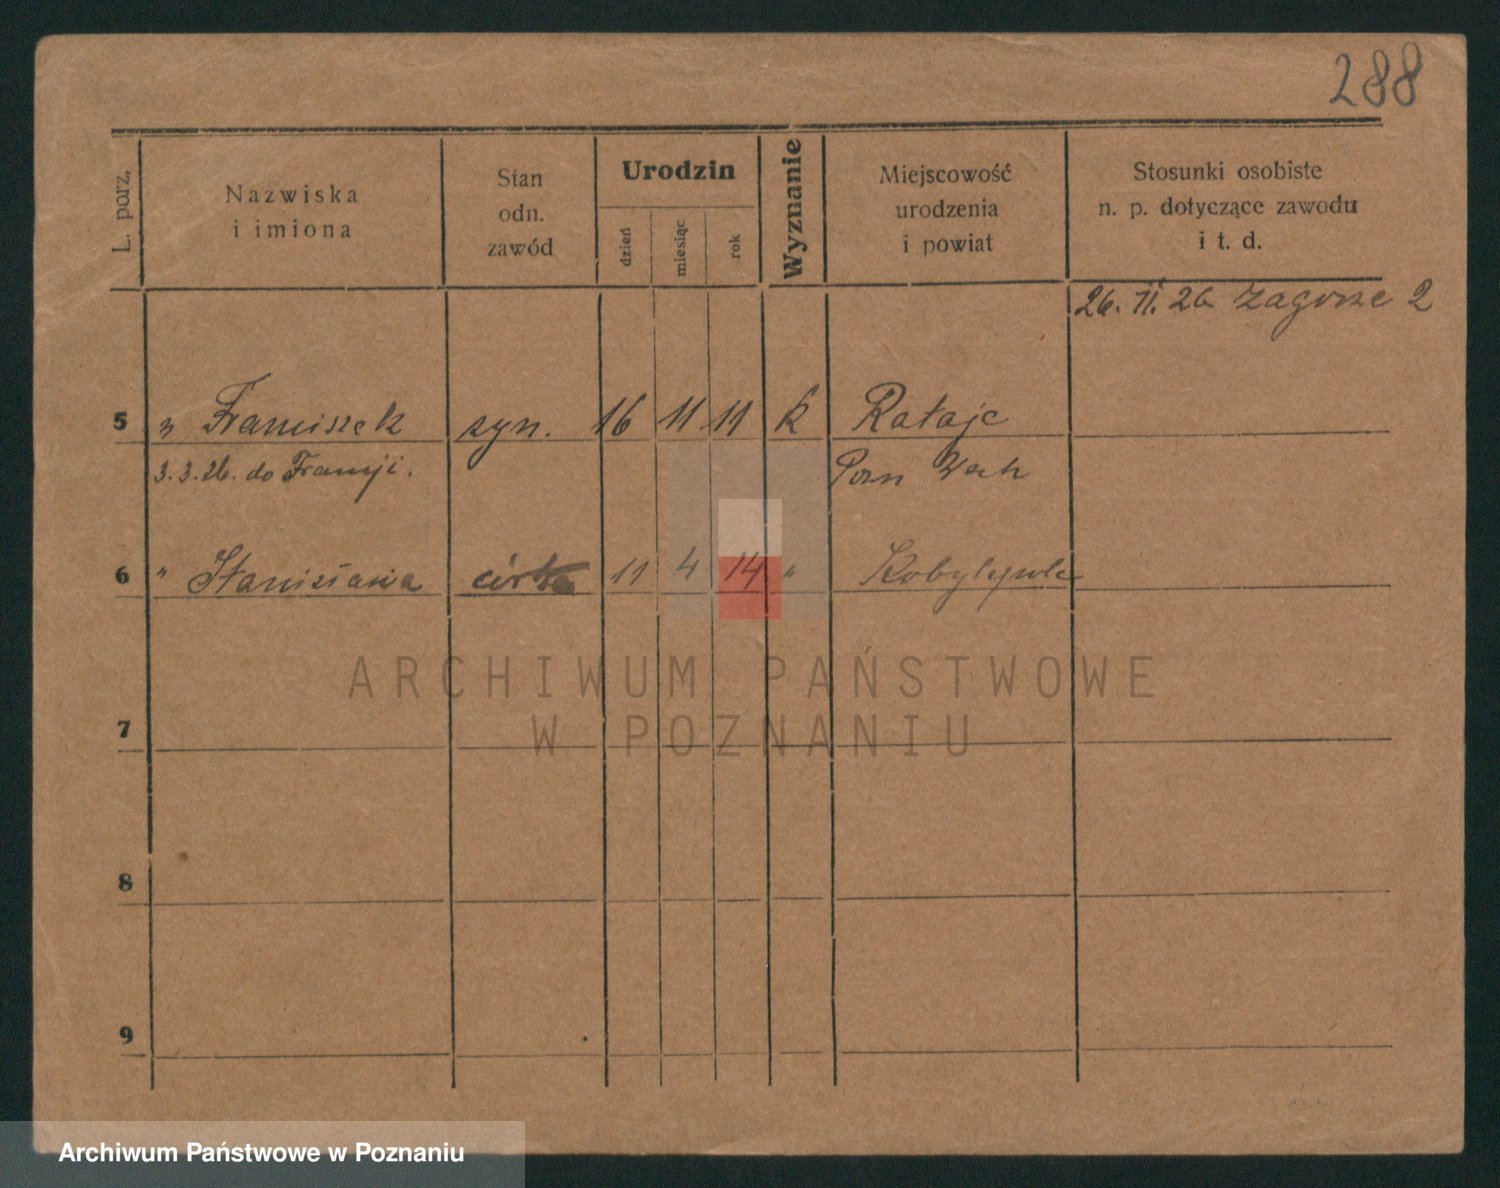 288
L. porz.
Nazwiska
i imiona
Stan
odn.
zawód
Urodzin
dzień
miesiąc
rok
Wyznanie
Miejscowość
urodzenia
i powiat
Stosunki osobiste
n. p. dotyczące zawodu
i t. d.
26. II. 26 Zagorze 2
5 " Franciszek syn. 16 11 11 k Rataje
3.3.26. do Francji. Pozn Wsch
6 " Stanisława córka 11 4 14 " Kobylepole
ARCHIWUM PAŃSTWOWE
W POZNANIU
7
8
9
Archiwum Państwowe w Poznaniu